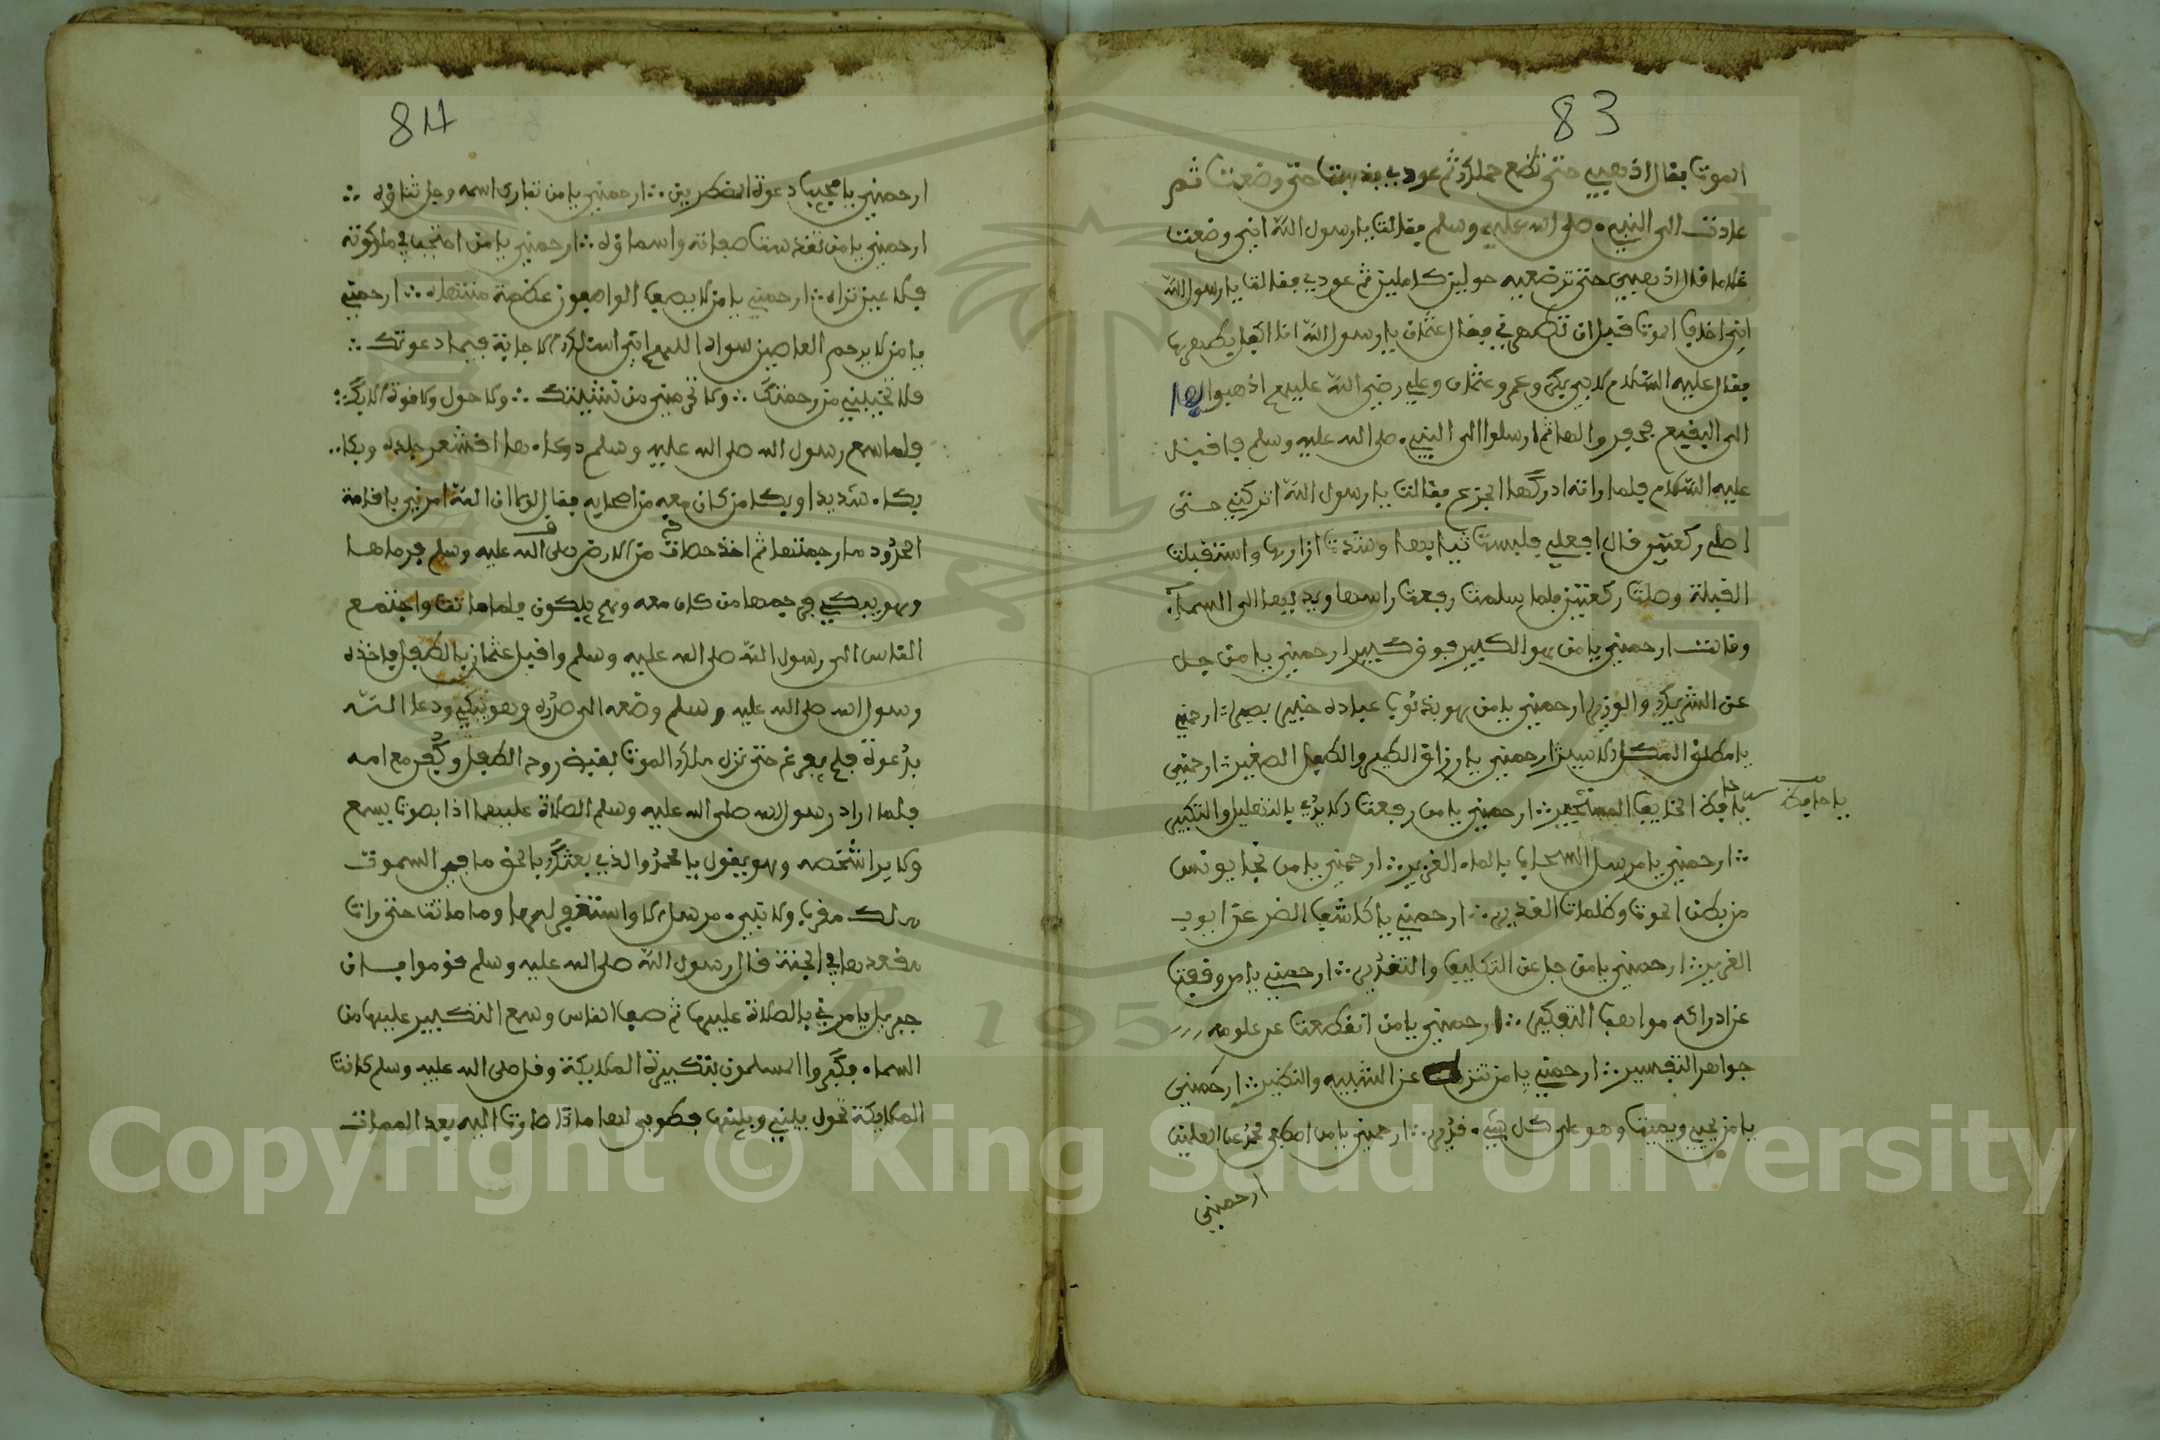 83
الموت فقال اذهبي حتى تضع حملك ثم عودي فذهبت حتى وضعت ثم
عادت الى النبيء صلى الله عليه وسلم فقالت يا رسول الله انني وضعت
غلاما قال اذهبي حتى ترضعيه حولين كاملين ثم عودي فقالت يا رسول الله
انني اخاف الموت قبل ان تطهرني فقال عثمان يا رسول الله انا اكفل طفلها
فقال عليه السلام لابي بكر وعمر وعثمان وعلي رضي الله عليهم اذهبوا بها
الى البقيع فحفروا لها ثم ارسلوا الى النبيء صلى الله عليه وسلم فاقبل
عليه السلام فلما راته ادركها الجزع فقالت يا رسول الله اتركني حتى
اصلي ركعتين قال افعلي فلبست ثيابها وشدت ازارها واستقبلت
القبلة وصلت ركعتين فلما سلمت رفعت راسها ويديها الى السماء
وقالت ارحمني يا من هو الكبير فوق كبير ارحمني يا من جل
عن الشريك والوزير ارحمني يا من هو بذنوب عباده خبير بصير ارحمني
يا مطلق المكبل الاسير ارحمني يا رازق الكبير والطفل الصغير ارحمني
يا حافظ الخايف المستجير ارحمني يا من رفعت له الايدي بالتهليل والتكبير
يا حافظ
ارحمني يا مرسل السحاب بالماء الغزير ارحمني يا من نجا يونس
من بطن الحوت وظلمات الغدير ارحمني يا كاشف الضر عن ايوب
الضرير ارحمني يا من جل عن التكييف والتقدير ارحمني يا من وقفت
عن ادراكه مواهب التفكير ارحمني يا من انقطعت عن علومه
جواهر التفسير ارحمني يا من تنزه عن الشبيه والنظير ارحمني
يا من يحيي ويميت وهو على كل شيء قدير ارحمني يا من اصطفى محمد على العلمين
ارحمني
84
ارحمني يا مجيب دعوة المضطرين ارحمني يا من تبارك اسمه وجل ثناؤه
ارحمني يا من تقدست صفاته واسماؤه ارحمني يا من احتجب في ملكوته
فلا عين تراه ارحمني يا من لا يصف الواصفون عظمة منتهاه ارحمني
يا من لا يرحم العاصين سواه اللهم اني اسئلك الاجابة فيما دعوتك
فلا تخيبني من رحمتك ولا تحرمني من تثبيتك ولا حول ولا قوة الا بك
فلما سمع رسول الله صلى الله عليه وسلم دعاءها اقشعر جلده وبكا
بكاء شديدا وبكا من كان معه من اصحابه فقال لولا ان الله امرني باقامة
الحدود ما رجمتها ثم اخذ حصات من الارض صلى الله عليه وسلم فرماها
وهو يبكي فرجمها من كان معه وهم يبكون فلما ماتت واجتمع
الناس الى رسول الله صلى الله عليه وسلم واقبل عثمان بالطفل فاخذه
رسول الله صلى الله عليه وسلم وضعه الى صدره وهو يبكي ودعا الله
بدعوة فلم يفرغ حتى نزل ملك الموت بقبض روح الطفل وكفن مع امه
فلما اراد رسول الله صلى الله عليه وسلم الصلاة عليهما اذا بصوت يسمع
ولا يرا شخصه وهو يقول يا محمد والذي بعثك بالحق ما في السموت
ملك مقرب ولا نبيء مرسل الا واستغفر لهما وما ماتت حتى رات
مقعدها في الجنة قال رسول الله صلى الله عليه وسلم قوموا فان
جبريل يامرني بالصلاة عليهما ثم صف الناس وسمع التكبير عليهما من
السماء فكبروا المسلمون بتكبيرة الملايكة وقال صلى الله عليه وسلم كانت
الملايكة تحول بيني وبينها فطوبى لها ماذا صارت اليه بعد الممات
Copyright © King Saud University
1957